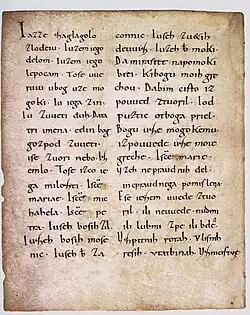 Iazze zaglagolo
zlodeiu. Iuzem iego
delom. Iuzem iego
lepocam. Tose uue
ruiu ubog uze mo
goki. Iu iega zin.
Iu zuueti duh. Da ta
tri imena. edin bog
gozpod zuueti.
ise zuori nebo. Iz
emlo. Tose izco ie
ga milozti. Isce
mariae. Isce mic
hahela. Isce pe
tra. Iuseh bosih zil.
Iuzeh bosih mose
nic. Iuseh b za
connic. Iuseh zuetih
deuuiz. Iuzeh b moki.
Da mi rasite napomoki
biti. Kibogu moih gre
chou. Dabim cisto iz
pouued ztuoril. Iod
puztic otboga priel.
Bogu uze mogokemu
izpouuede. uze moie
greche. Isce marie.
uzeh nepraudnih del.
inepraudnega pomislena.
Ese iesem uuede ztuo
ril. ili neuuede. nudmi
ili lubmi zpe ili bde.
Uzpitnih rotah. Ulisnih
resih. Utatbinah. Uznicistue.